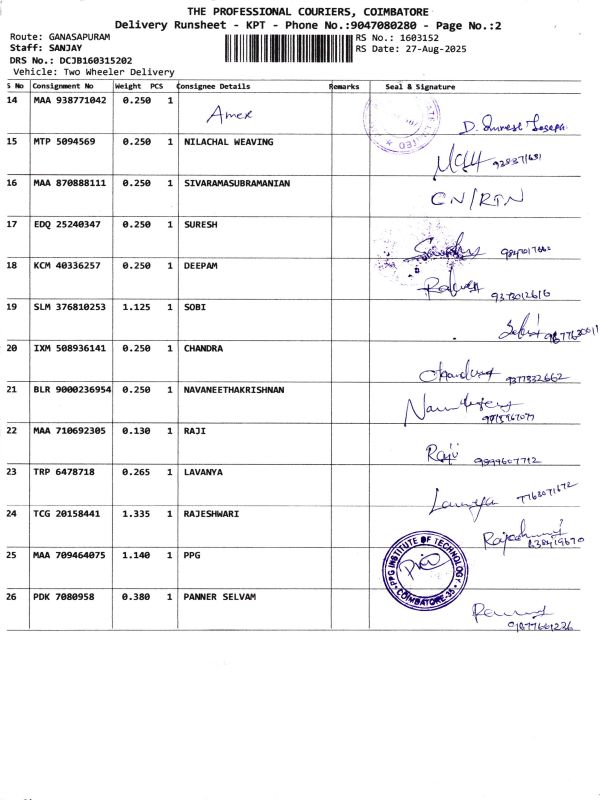 THE PROFESSIONAL COURIERS, COIMBATORE
Delivery Runsheet - KPT - Phone No.:9047080280 - Page No.:2
Route: GANASAPURAM RS No.: 1603152
Staff: SANJAY RS Date: 27-Aug-2025
DRS No.: DCJB160315202
Vehicle: Two Wheeler Delivery
S No Consignment No Weight PCS Consignee Details Remarks Seal & Signature
14 MAA 938771042 0.250 1 Amex
15 MTP 5094569 0.250 1 NILACHAL WEAVING
16 MAA 870888111 0.250 1 SIVARAMASUBRAMANIAN CN/RTN
17 EDQ 25240347 0.250 1 SURESH
18 KCM 40336257 0.250 1 DEEPAM
9373012616
19 SLM 376810253 1.125 1 SOBI
20 IXM 508936141 0.250 1 CHANDRA
9377332662
21 BLR 9000236954 0.250 1 NAVANEETHAKRISHNAN
22 MAA 710692305 0.130 1 RAJI
Raji 9899607712
23 TRP 6478718 0.265 1 LAVANYA
Lavanya 7763071672
24 TCG 20158441 1.335 1 RAJESHWARI
25 MAA 709464075 1.140 1 PPG
PPG INSTITUTE OF TECHNOLOGY
COIMBATORE-35
26 PDK 7080958 0.380 1 PANNER SELVAM